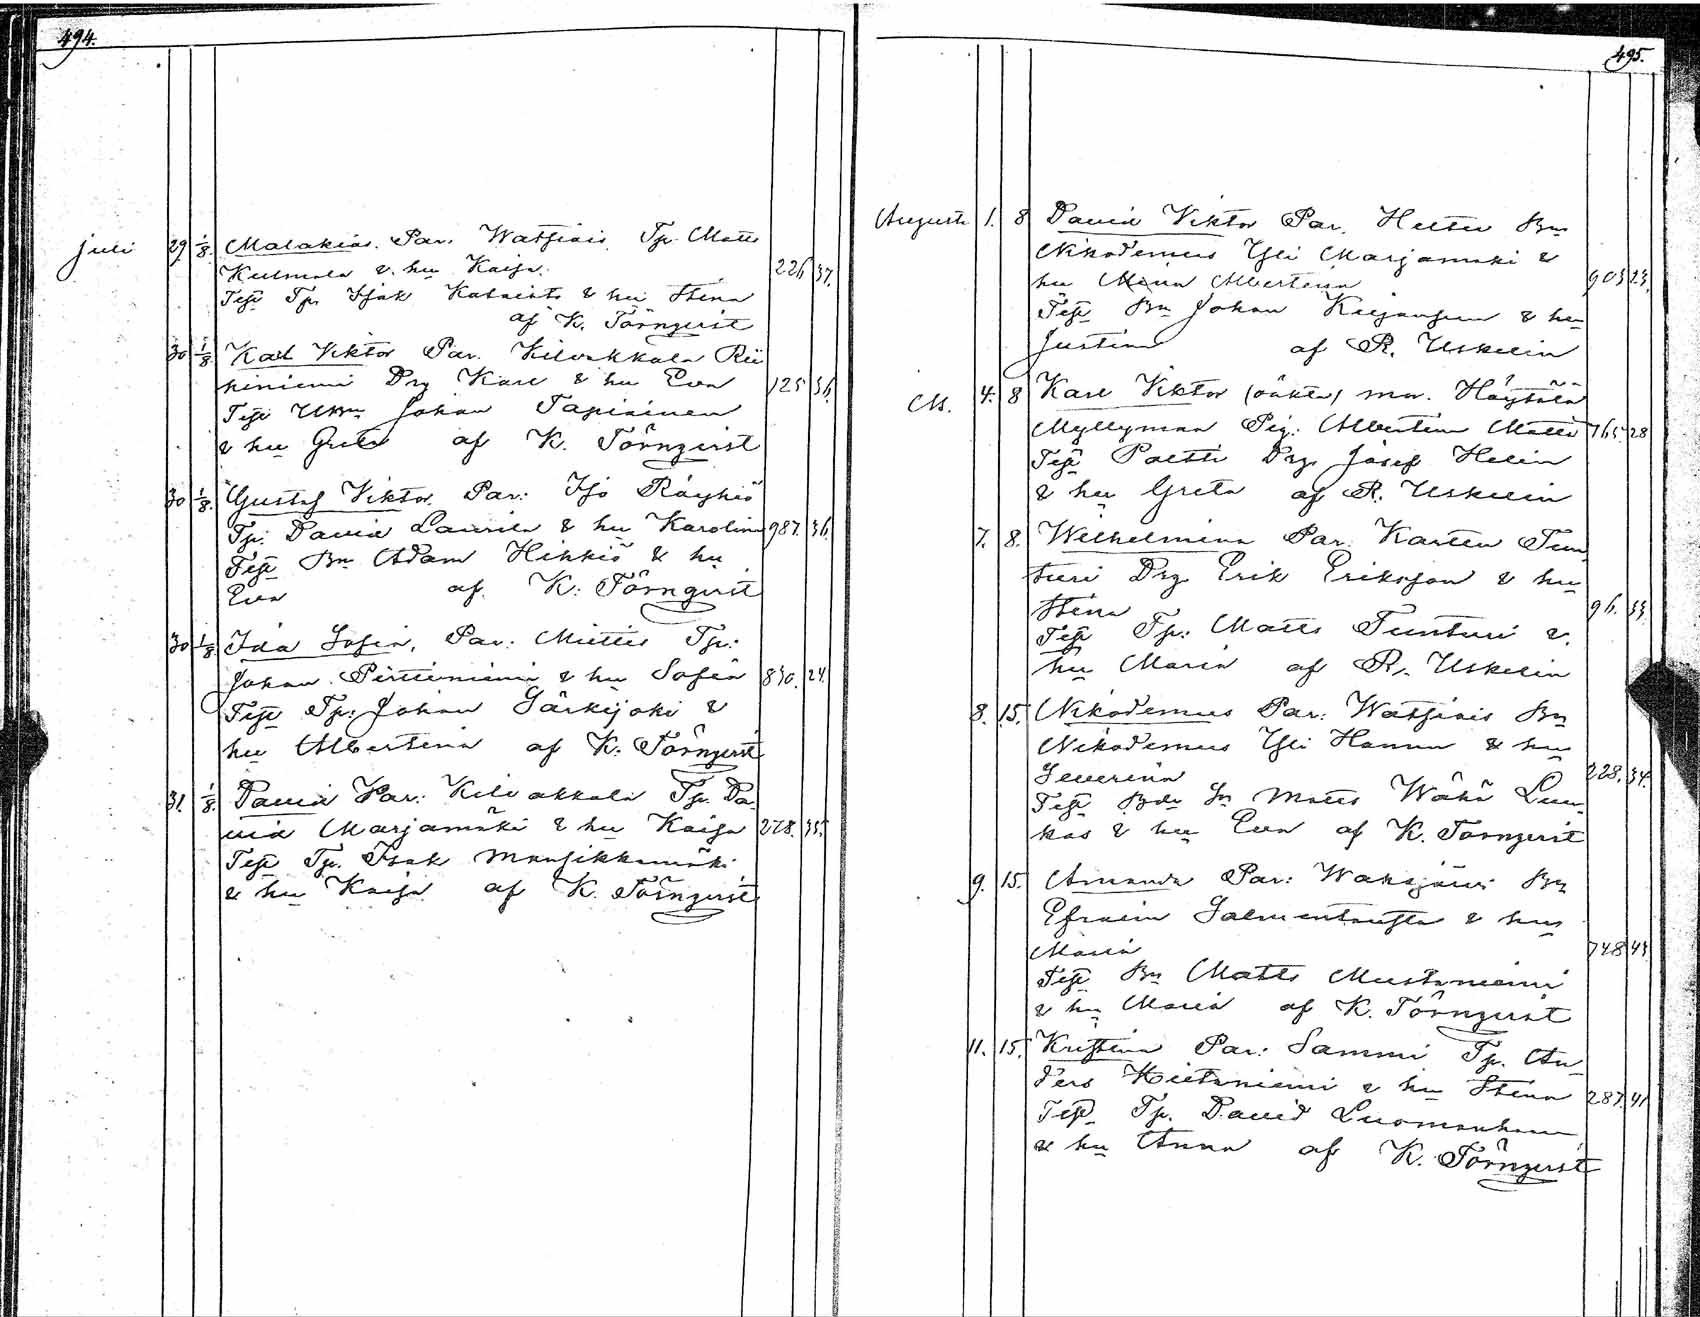 494.
Juli 29 1/8 Malakias. Par. Watjiais, Tp. Matts
Kulmala & hu Kaisa. 226 37.
Test Tp. Isak & hu Stina
af K. Törnqvist
30 1/8 Karl Viktor Par. Kilvakkala Rii
niemi Drg Karl & hu Eva 125 36.
Test Johan Tapiainen
& hu Greta af K. Törnqvist
30 1/8 Gustaf Viktor. Par: Iso Röyhiö
Tp: David Laurila & hu Karolina 987. 36.
Test Bn Adam Heikkiö & hu
Eva af K: Törnqvist
30 1/8 Ida Sofia, Par: Miettis Tp:
Johan Pittiniemi & hu Sofia 830. 24.
Test Tp: Johan Särkijoki &
hu Albertina af K: Törnqvist
31 1/8 David Par: Kilvakkala Tp. Da
vid Marjamäki & hu Kaisa 278. 35.
Test Tp. Isak Mansikkamäki
& hu Kaisa af K. Törnqvist
495.
Augusti 1. 8 David Viktor Par. Heittu Bn
Nikodemus Yli Marjamäki &
hu Mina Albertina 903 23.
Test Bn Johan & hu
Justina af R. Uskelin
4. 8 Karl Viktor (oäkta) mor. Höytölä
Myllymaa Pig: Albertina Matts 765 28
Test Poltti Drg Josef Helin
& hu Greta af R. Uskelin
7. 8. Wilhelmina Par. Karttu Tun
turi Drg Erik Eriksson & hu
Stina 96. 33.
Test Tp: Matts Tunturi &
hu Maria af R. Uskelin
8. 15. Nikodemus Par: Watjiais Bn
Nikodemus Yli Hannu & hu
Severina 228. 34.
Test Matts Wähä Luu
kas & hu Eva af K. Törnqvist
9. 15. Amanda Par: Wahojärvi Bn
Efraim & hu
Maria 748 43.
Test Bn Matts Mustaniemi
& hu Maria af K. Törnqvist
11. 15. Kristina Par: Sammi Tp. An
ders Kietaniemi & hu Stina 287. 41
Test Tp. David Luomanhaara
& hu Anna af K. Törnqvist